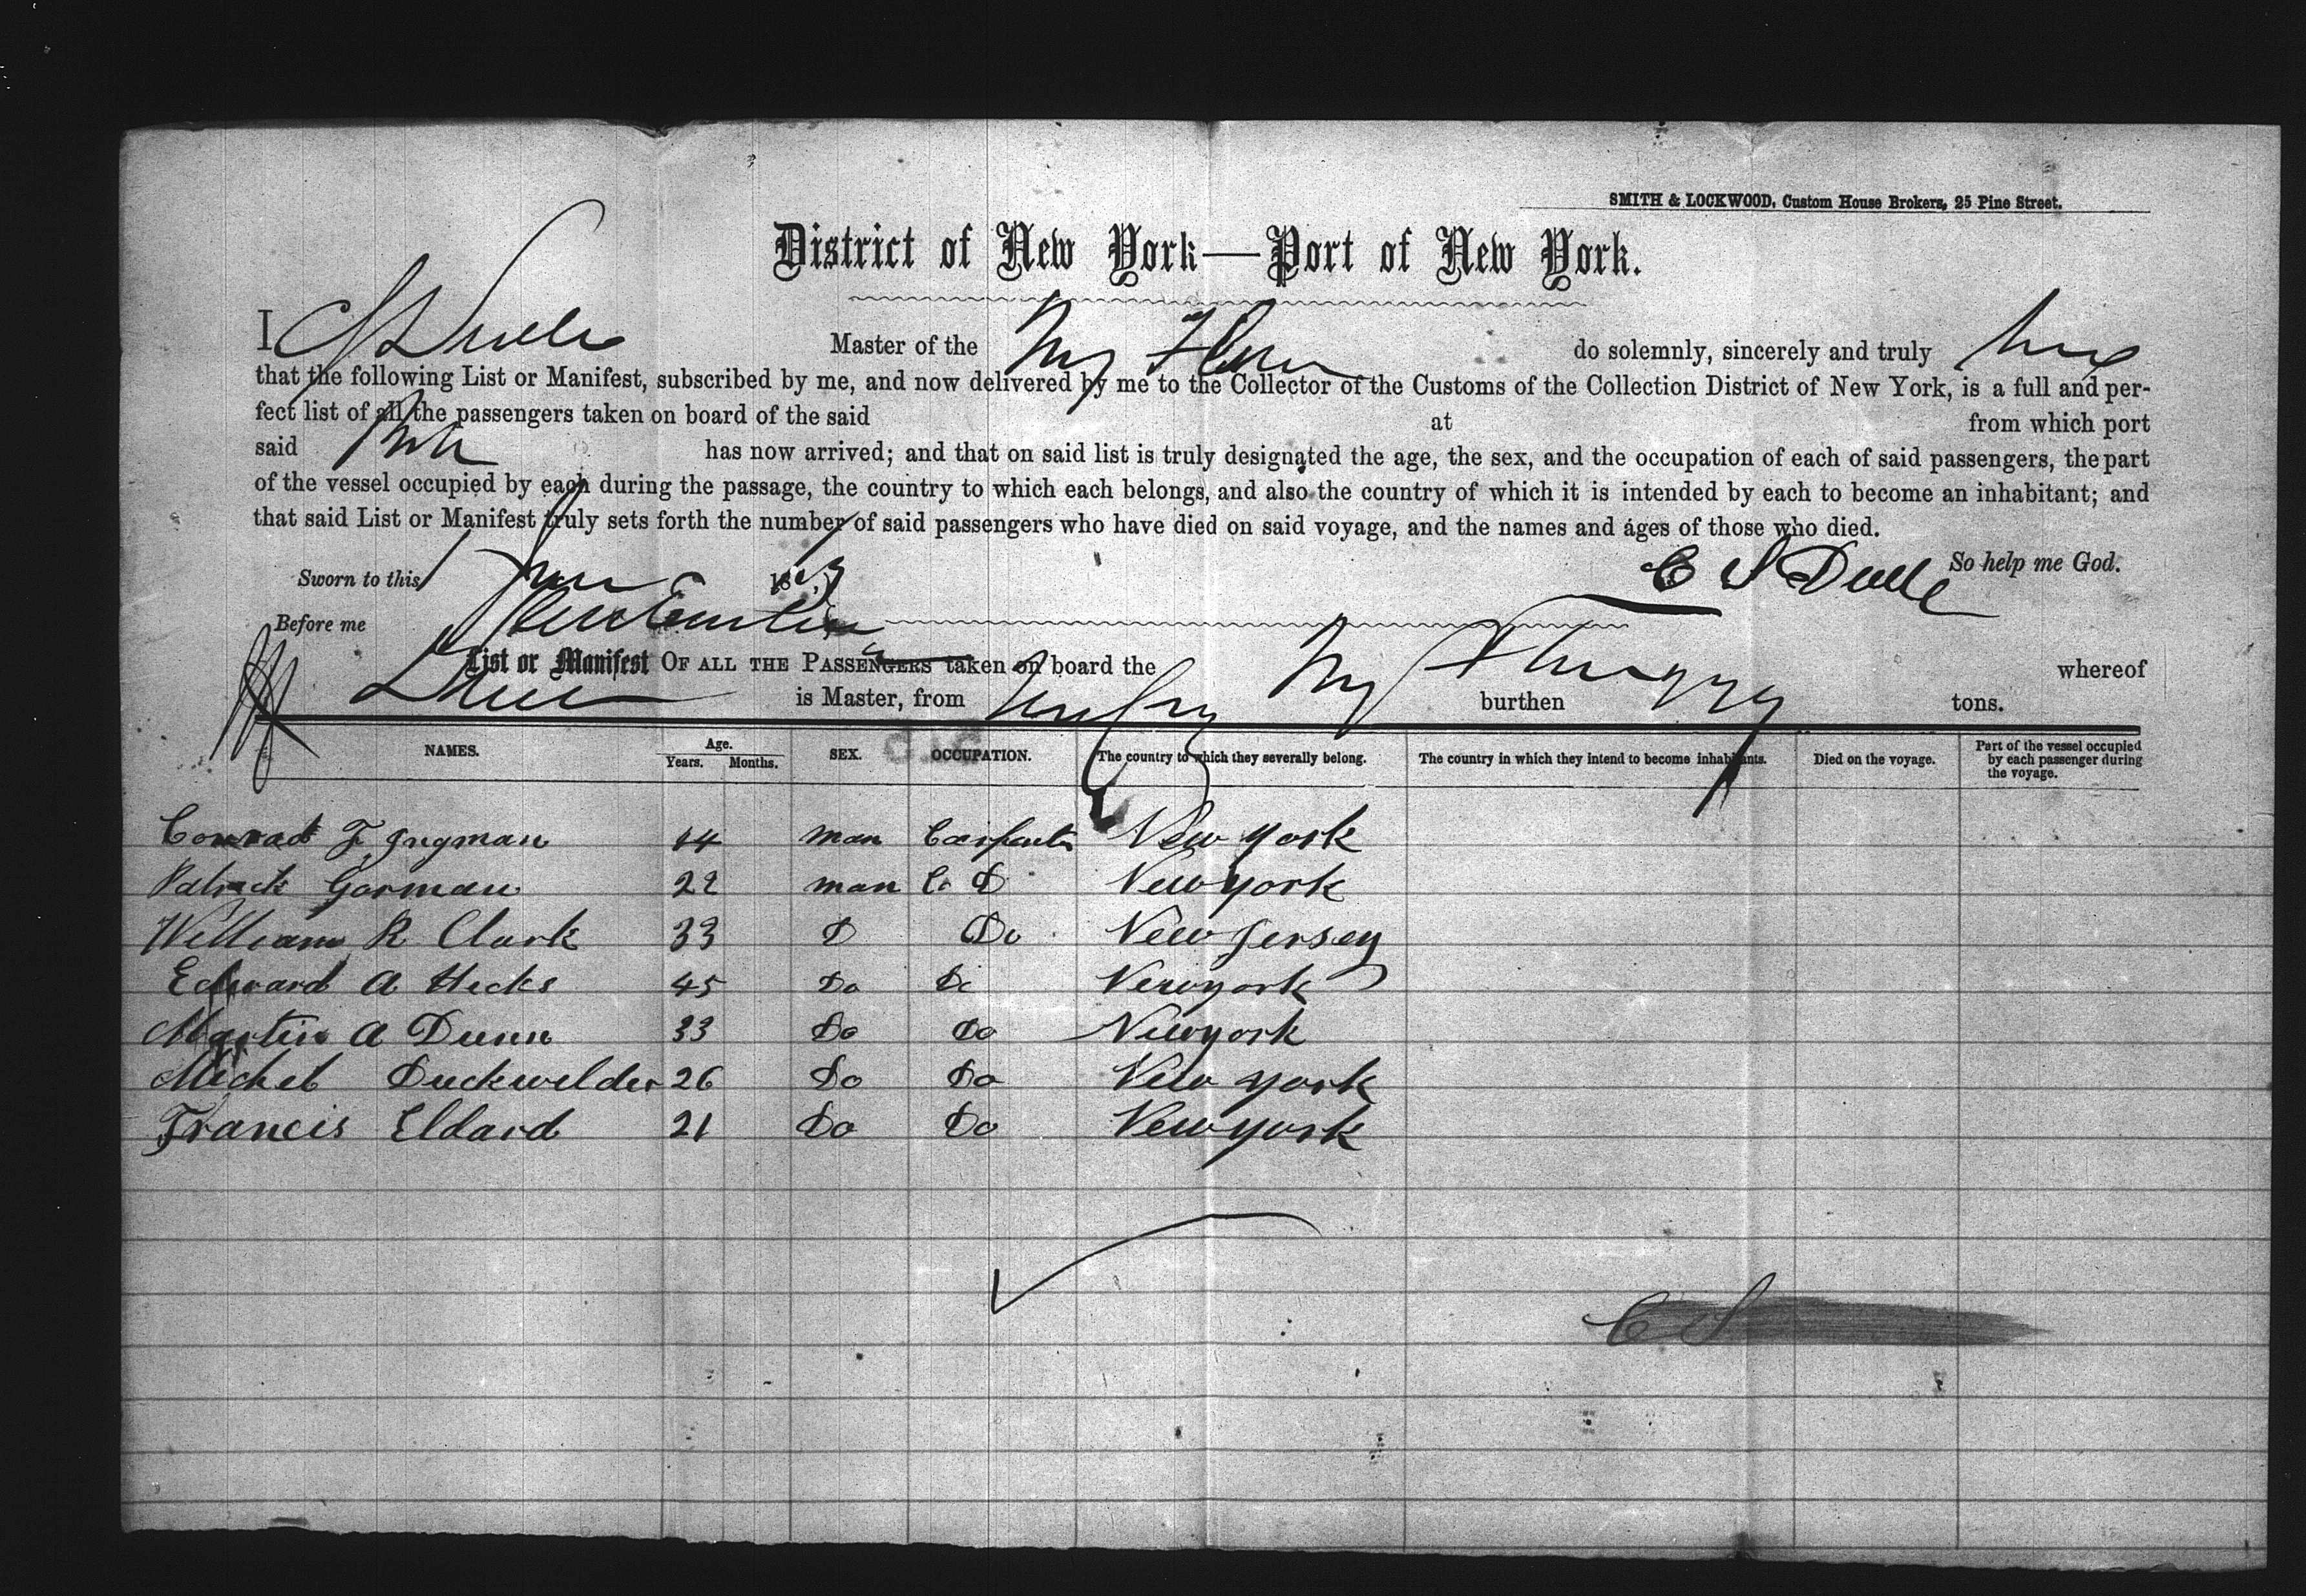 SMITH & LOCKWOOD, Custom House Brokers, 25 Pine Street.
District of New York—Port of New York.
I Master of the do solemnly, sincerely and truly
that the following List or Manifest, subscribed by me, and now delivered by me to the Collector of the Customs of the Collection District of New York, is a full and per-
fect list of all the passengers taken on board of the said at from which port
said has now arrived; and that on said list is truly designated the age, the sex, and the occupation of each of said passengers, the part
of the vessel occupied by each during the passage, the country to which each belongs, and also the country of which it is intended by each to become an inhabitant; and
that said List or Manifest truly sets forth the number of said passengers who have died on said voyage, and the names and ages of those who died.
So help me God.
Sworn to this 18
C S
Before me
List or Manifest OF ALL THE PASSENGERS taken on board the whereof
is Master, from burthen tons.
NAMES. Age. Years. Months. SEX. OCCUPATION. The country to which they severally belong. The country in which they intend to become inhabitants. Died on the voyage. Part of the vessel occupied by each passenger during the voyage.
Conrad F Ingman 44 man Carpenter New York
Patrick Gorman 22 man D New York
William R Clark 33 D Do New Jersey
Edward A Hicks 45 Do Do New york
Martin A Dunn 33 Do Do New york
Michel Duckwelder 26 Do Do New york
Francis Eldard 21 Do Do New york
C S